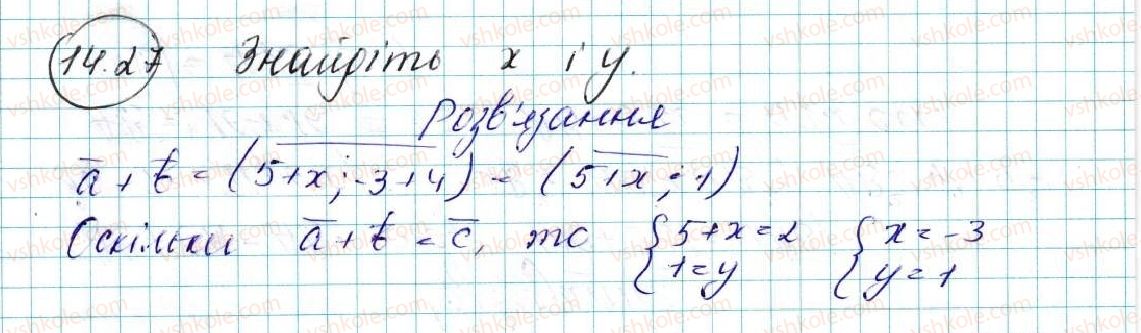 14.27 Знайдіть x і y.
Розв'язання
a̅ + b̅ = (5+x; -3+4) = (5+x; 1)
Оскільки a̅ + b̅ = c̅, то {5+x=2 {x=-3
{1=y {y=1